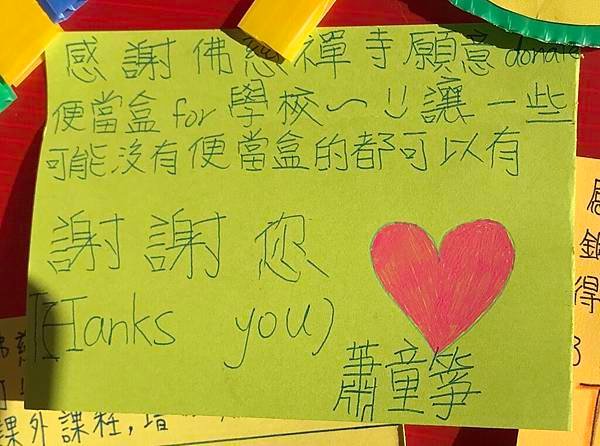 感謝佛慈禪寺願意donate
便當盒for學校~ 讓一些
可能沒有便當盒的都可以有
謝謝您
(THanks you)
蕭童箏
得
課外課程,增